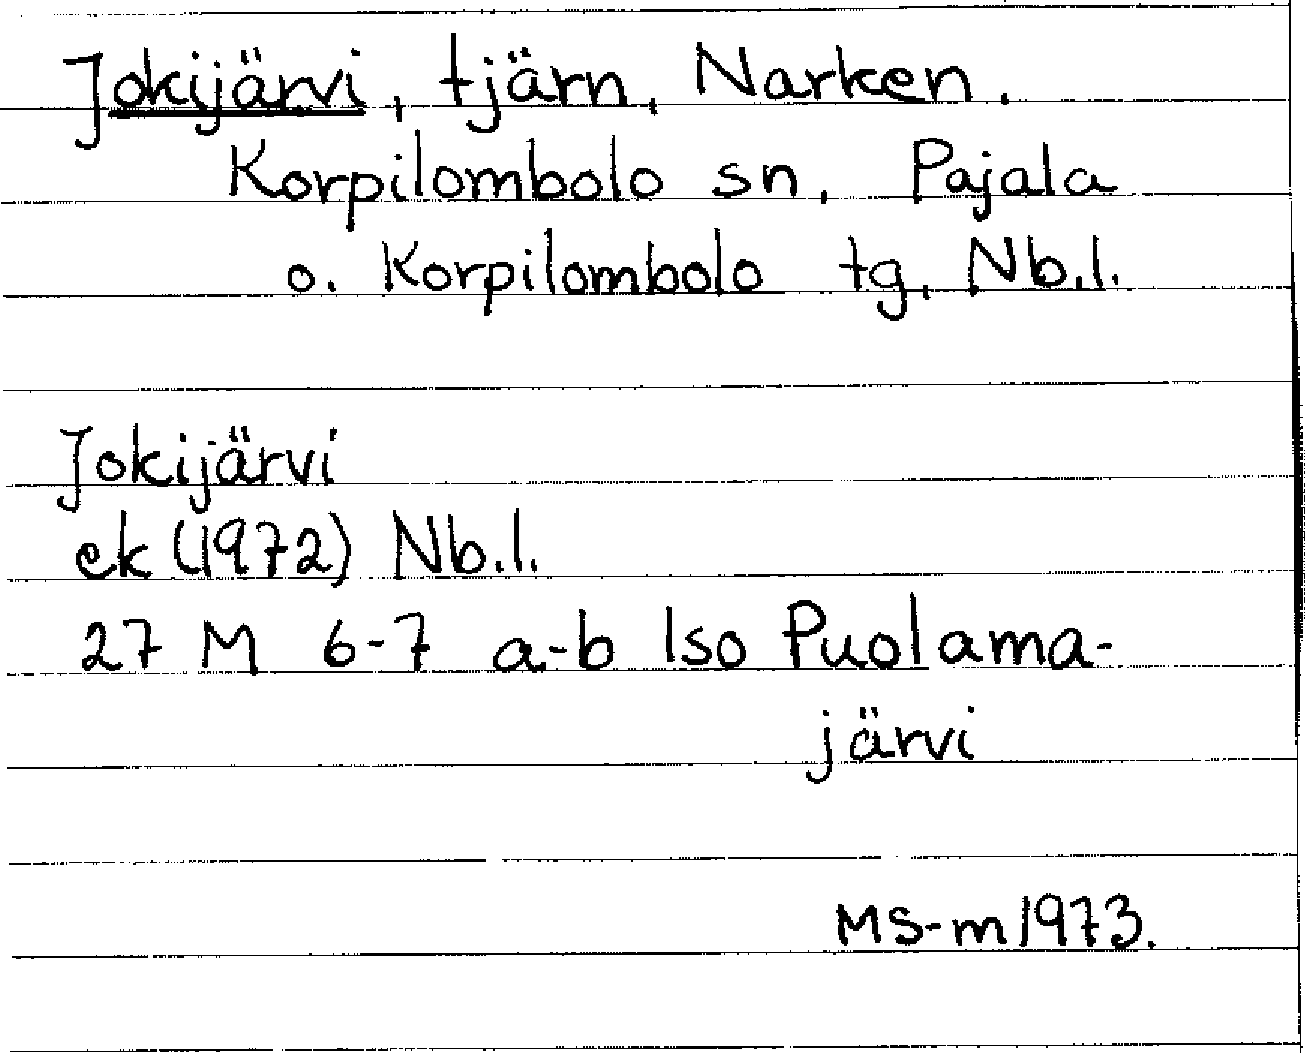 Jokijärvi, tjärn, Narken.
Korpilombolo sn, Pajala
o. Korpilombolo tg, Nb.l.
Jokijärvi
ek (1972) Nb.l.
27 M 6-7 a-b Iso Puolama-
järvi
MS-m 1973.